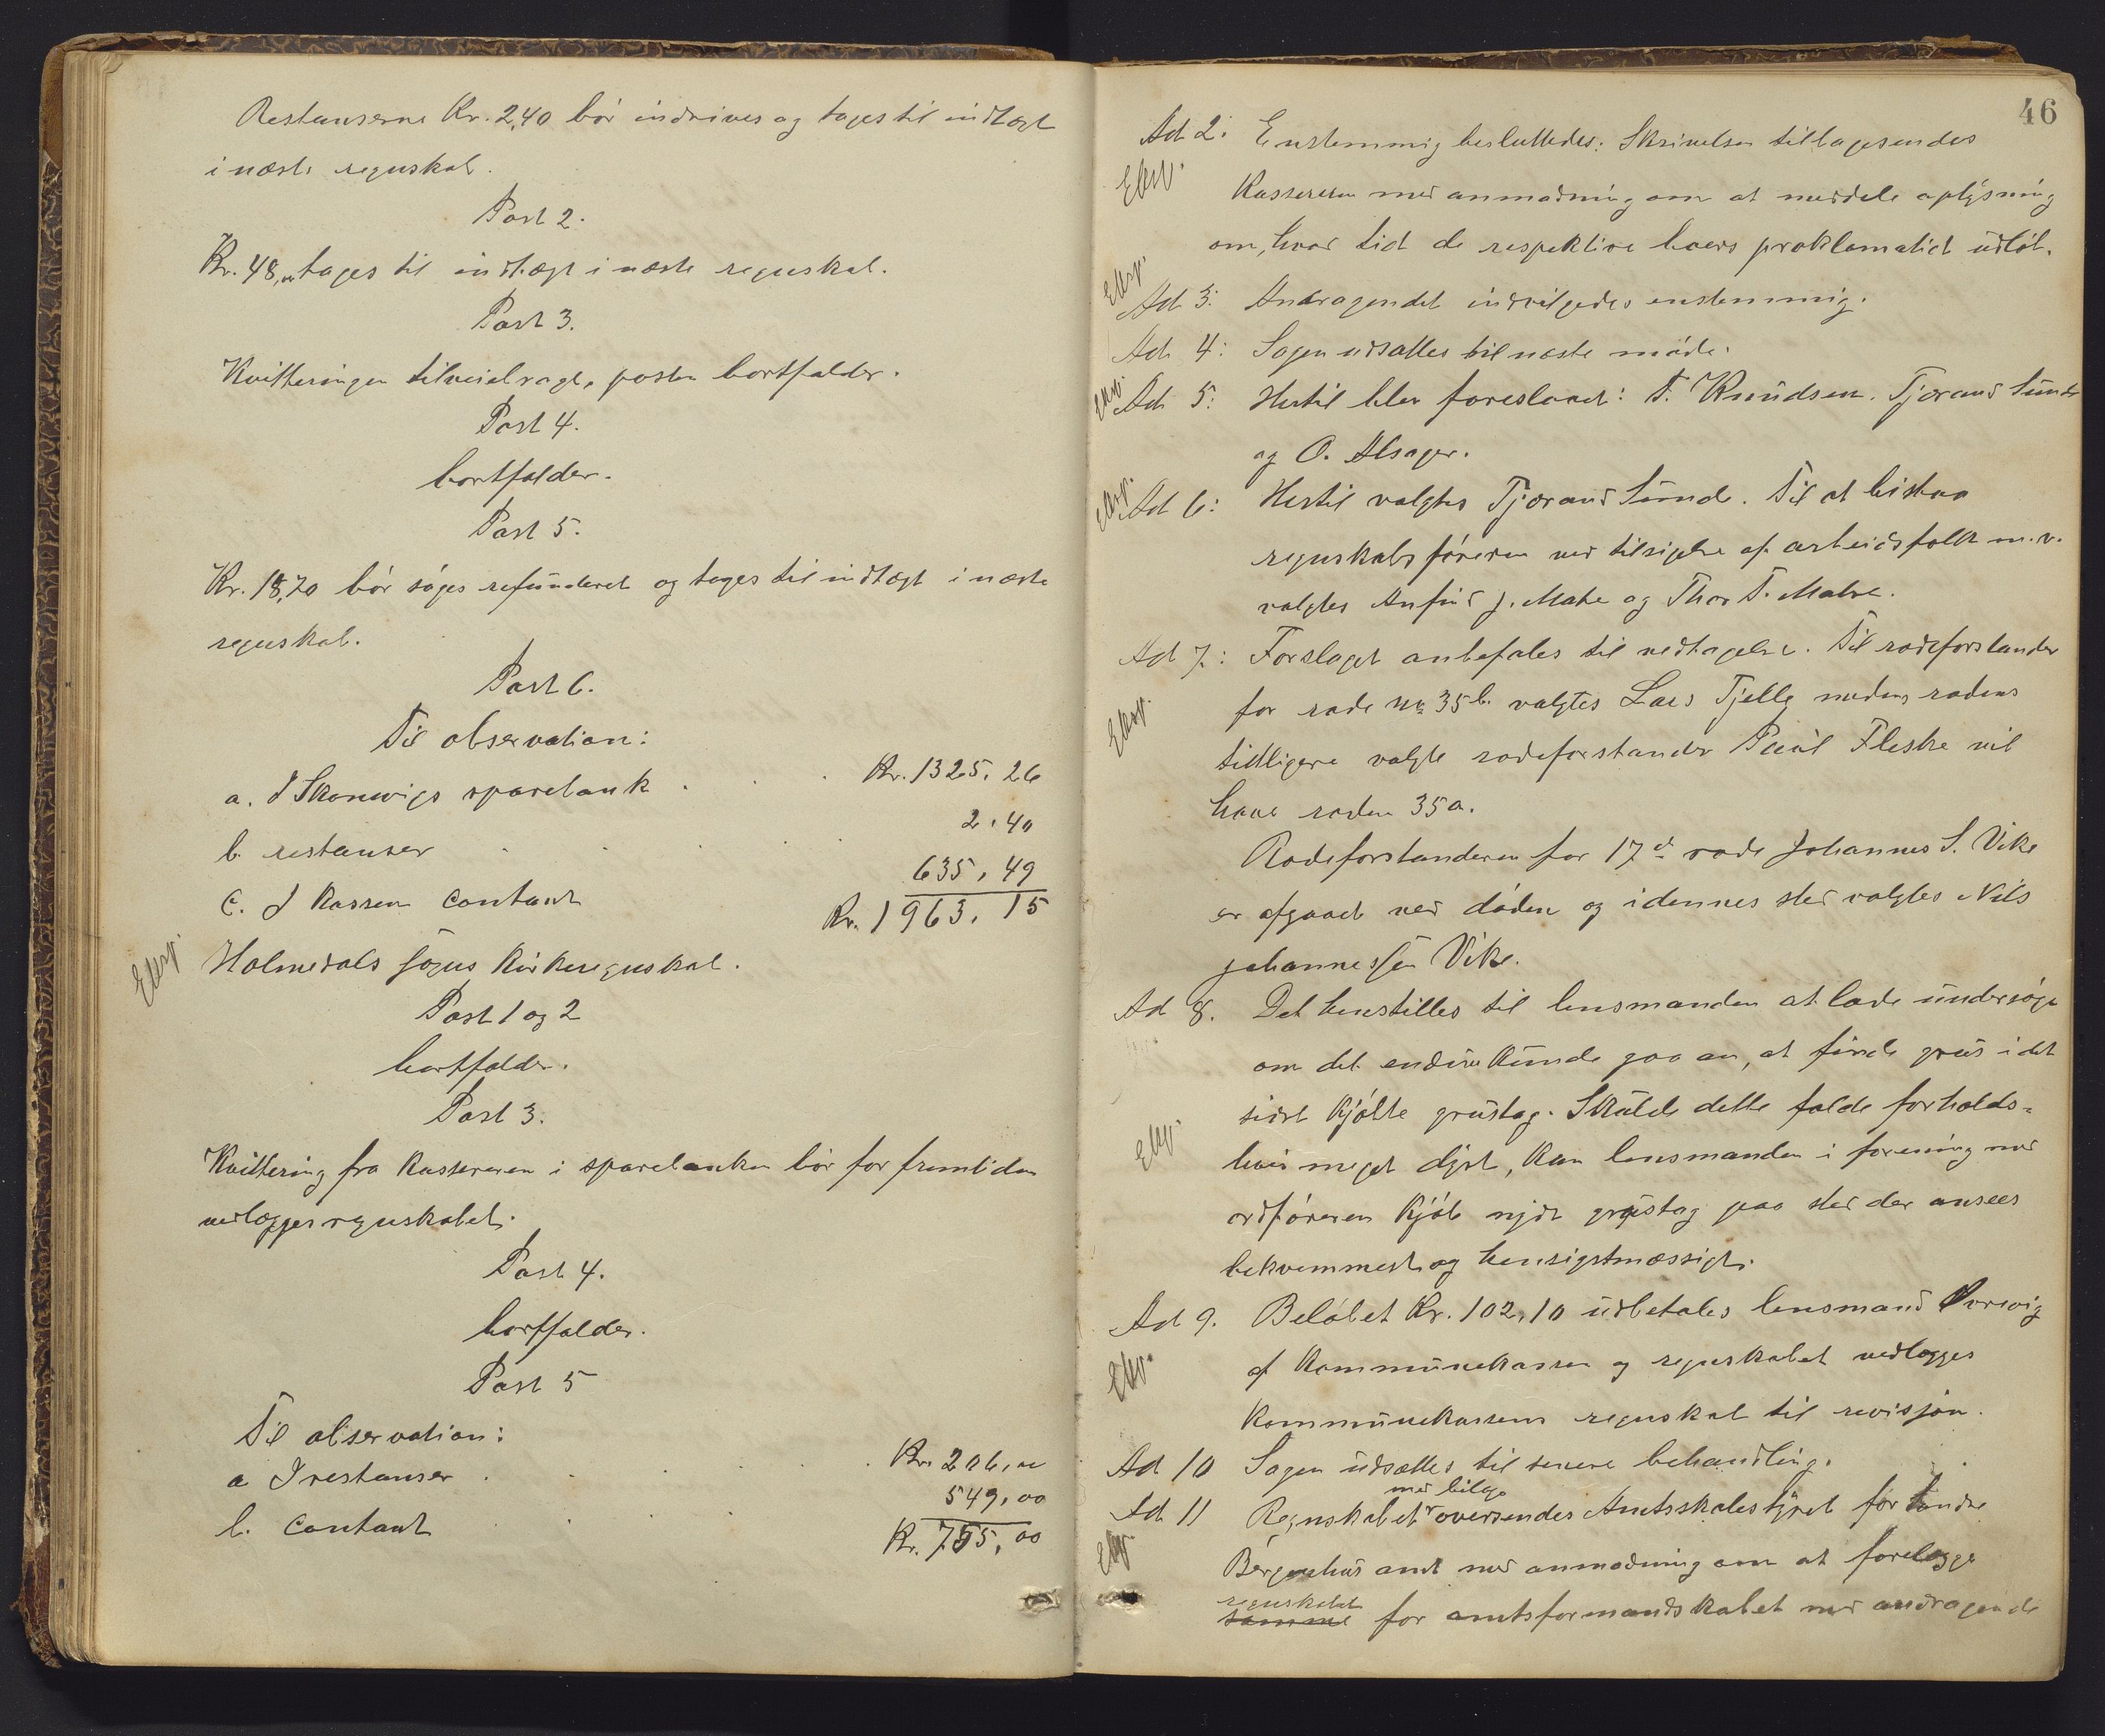 Restanserne Kr. 2,40 bör indrives og tages til indtægt
i næste regnskab.
Post 2.
Kr. 48,00 tages til indtægt i næste regnskab.
Post 3.
Kvitteringen tilveiebragt, posten bortfalder.
Post 4.
bortfalder.
Post 5.
Kr. 18,70 bör söges refunderet og tages til indtægt i næste
regnskab.
Post 6.
Til observation:
a. I Skonevigs sparebank . . Kr. 1325,26
b. restanser . . . . 2,40
c. I kassen contant 635,49
Kr. 1963,15
Eksp.
Holmedals sogns kirkeregnskab.
Post 1 og 2
bortfalder.
Post 3.
Kvittering fra kassereren i sparebanken bör for fremtiden
vedlægges regnskabet.
Post 4.
bortfalder.
Post 5
Til observation:
a I restanser . . . . . Kr. 206,00
b. contant . . . . 549,00
Kr. 755,00
46
Ad 2: Enstemmig besluttedes: Skrivelsen tilbagesendes
Eksp.
kassereren med anmodning om at meddele oplysning
om, hvad tid de respektive boers proklamatid udlöb.
Eksp.
Ad 3: Andragendet indvilgedes enstemmig.
Ad 4: Sagen udsattes til næste möde.
Eksp.
Ad 5: Hertil blev foreslaaet: T. Knudsen. Tjerand Sunde
og O. Alsager.
Eksp.
Ad 6: Hertil valgtes Tjerand Sunde. Til at bistaa
regnskabsföreren ved tilsigelse af arbeidsfolk m.v.
valgtes Anfind J. Matre og Thor T. Matre.
Ad 7: Forslaget anbefales til vedtagelse. Til rodeforstander
for rode No 35 b. valgtes Lars Tjelle medens rodens
Eksp.
tidligere valgte rodeforstander Paul Fleske vil
have roden 35 a.
Rodeforstanderen for 17de rode Johannes S. Vike
er afgaaet ved döden og i dennes sted valgtes Nils
Johannessen Vike.
Ad 8. Det henstilles til lensmanden at lade undersöge
om det endnu kunde gaa an, at finde grus i det
sidst kjöbte grustag. Skulde dette falde forholds-
Eksp.
hvis meget dyrt, kan lensmanden i forening med
ordföreren kjöbe nydt grustag paa sted der ansees
bekvemmest og hensigtmæssigt.
Ad 9. Belöbet Kr. 102,10 udbetales lensmand
af kommunekassen og regnskabet vedlægges
Eksp.
kommunekassens regnskab til revisjon.
Ad 10 Sagen udsættes til senere behandling.
med bilage
Ad 11 Regnskabet oversendes Amtsskolestyret for söndre
Eksp.
Bergenhus amt med anmodning om at forelægge
regnskabet
samme for amtsformandskabet med andragende